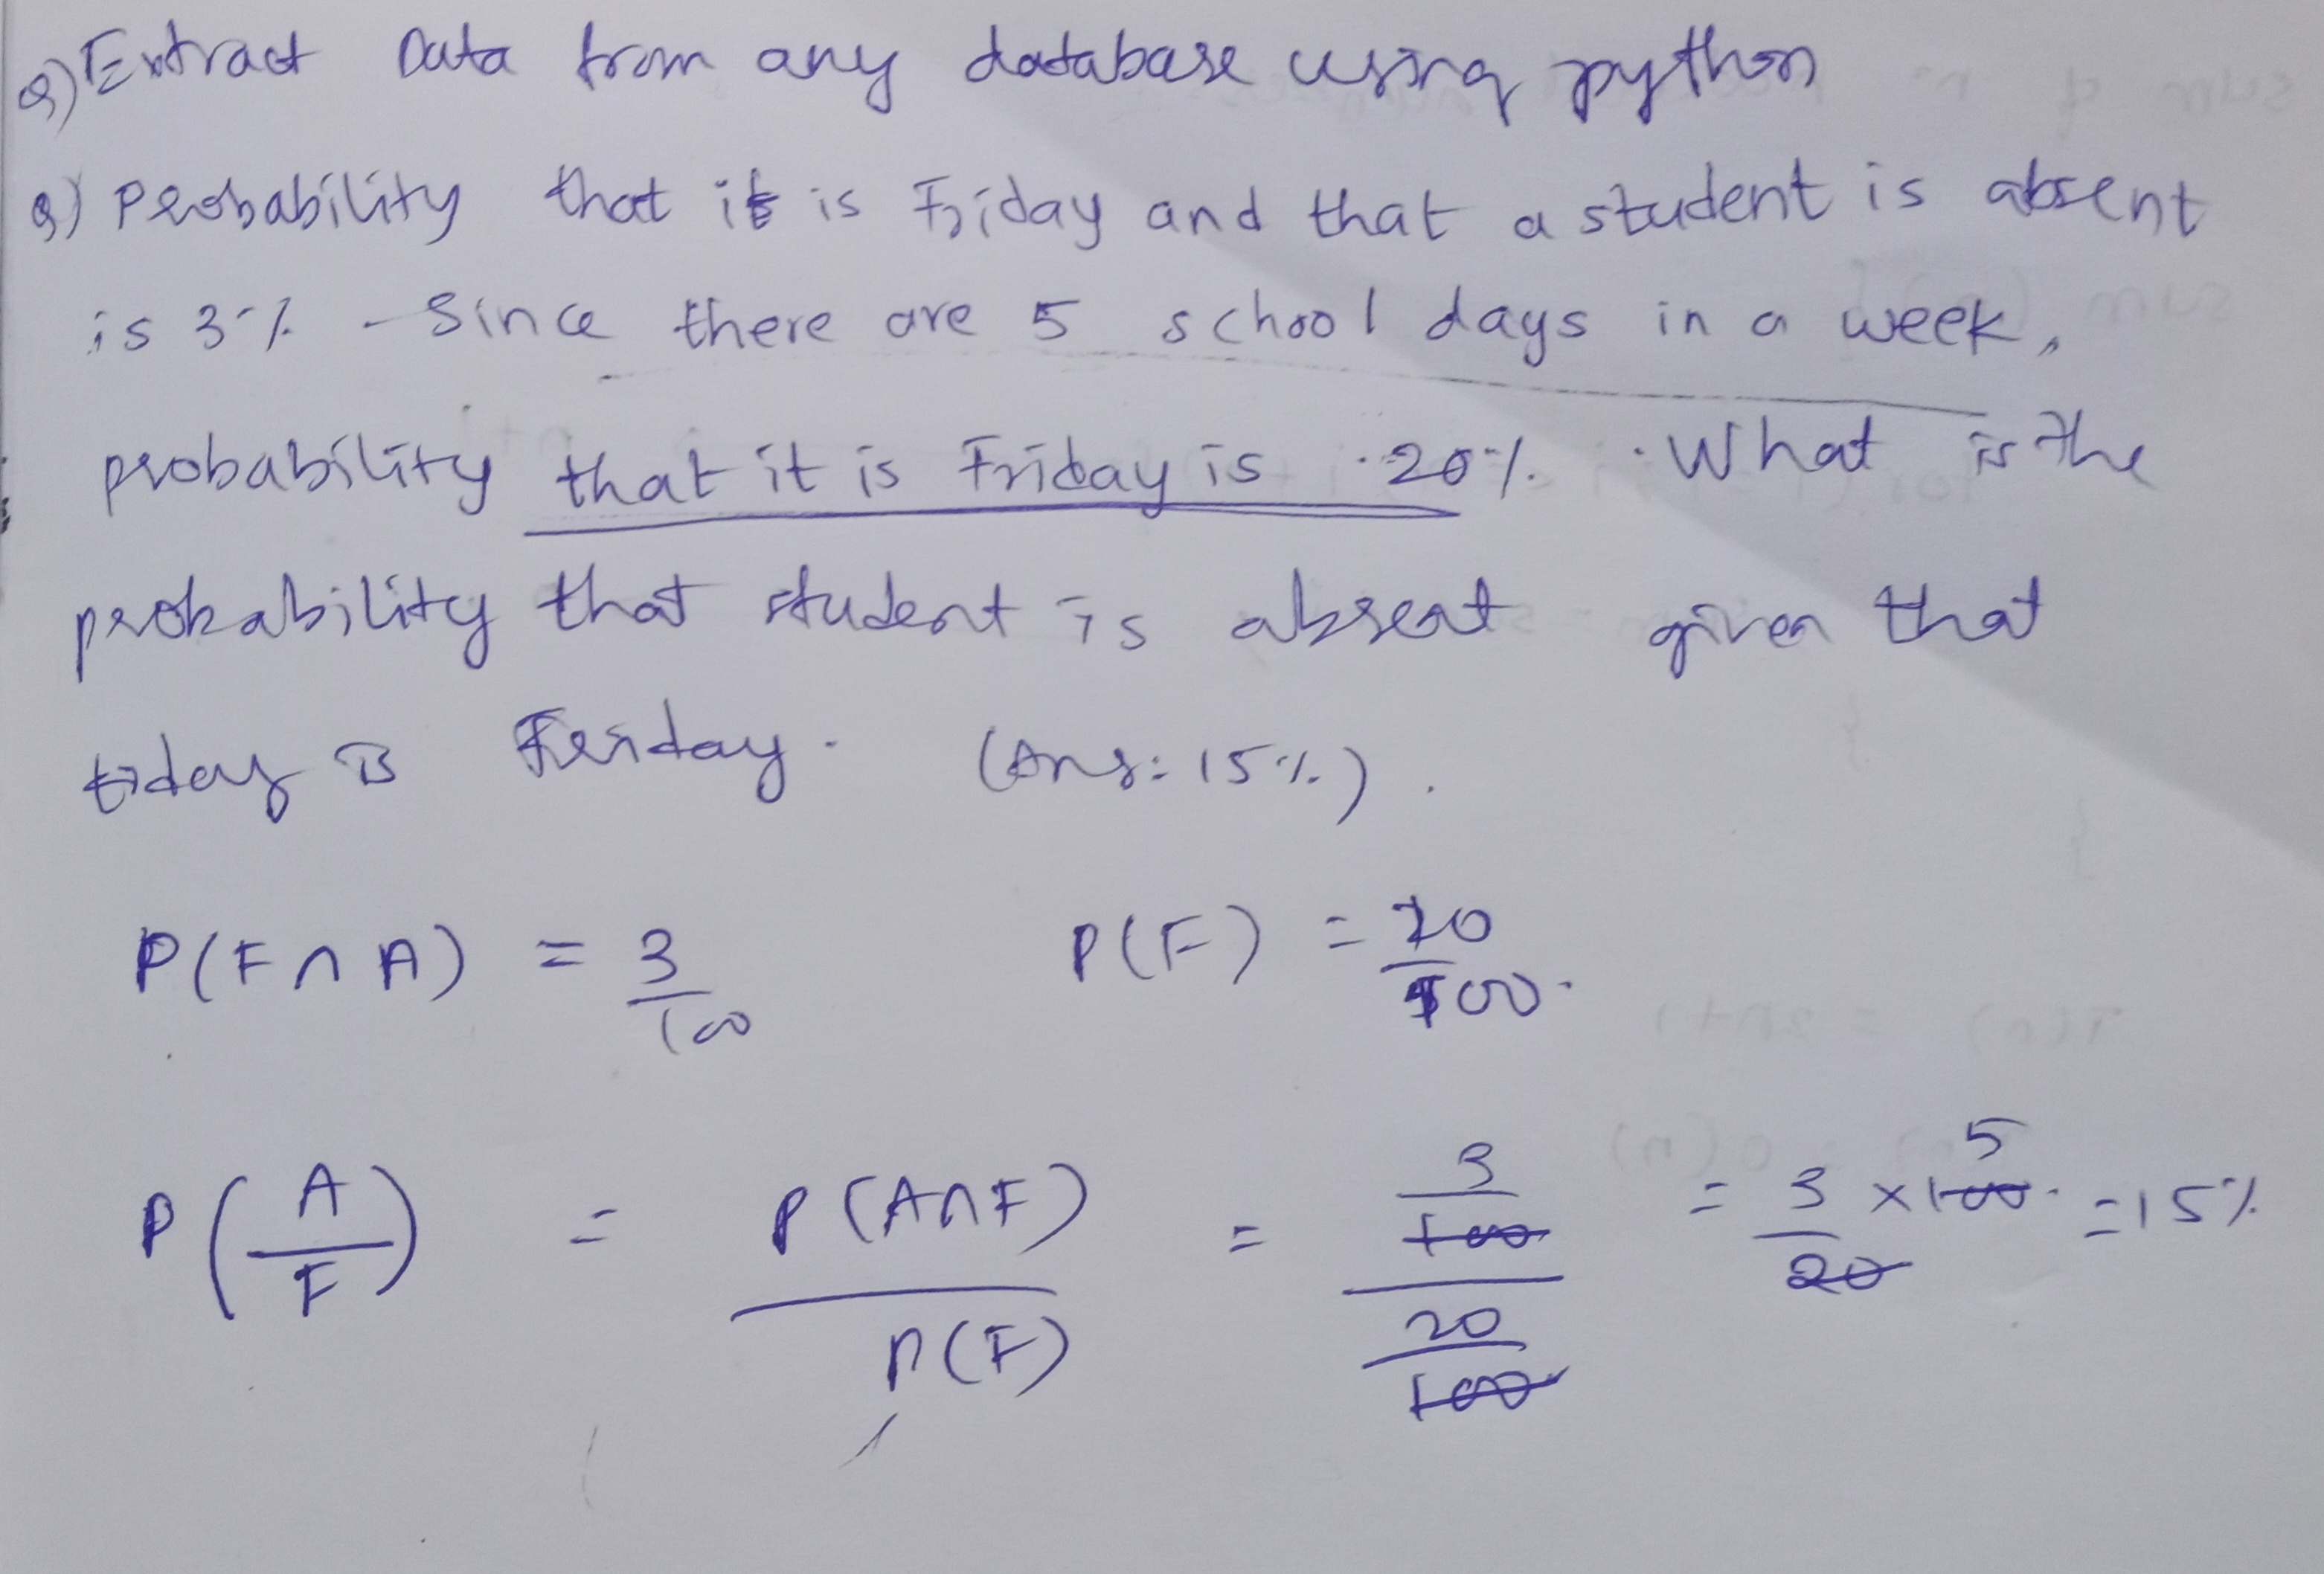 Q) Extract Data from any database using python
Q) Probability that it is Friday and that a student is absent
is 3%. Since there are 5 school days in a week,
probability that it is Friday is 20%. What is the
probability that student is absent given that
today is Friday. (Ans: 15%).
P(F∩A) = 3/100 P(F) = 20/100.
P(A/F) = P(A∩F)/P(F) = 3/100 / 20/100 = 3/20 × 100 5 = 15%